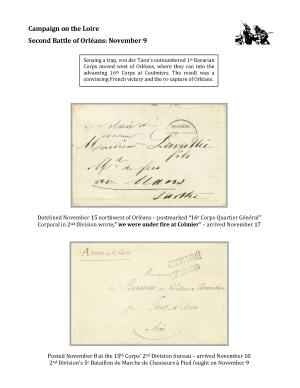 Campaign on the Loire
Second Battle of Orléans: November 9
Sensing a trap, von der Tann's outnumbered 1st Bavarian
Corps moved west of Orléans, where they ran into the
advancing 16th Corps at Coulmiers. The result was a
convincing French victory and the re-capture of Orléans.
Monsieur
fils
Mt de fers
au Mans
Sarthe
Datelined November 15 northwest of Orléans - postmarked "16e Corps Quartier Général"
Corporal in 2nd Division wrote," we were under fire at Colmier" – arrived November 17
Armée de la Loire
Monsieur
de
par
Ain
Posted November 8 at the 15th Corps' 2nd Division bureau – arrived November 10
2nd Division's 5e Bataillon de Marche de Chasseurs à Pied fought on November 9